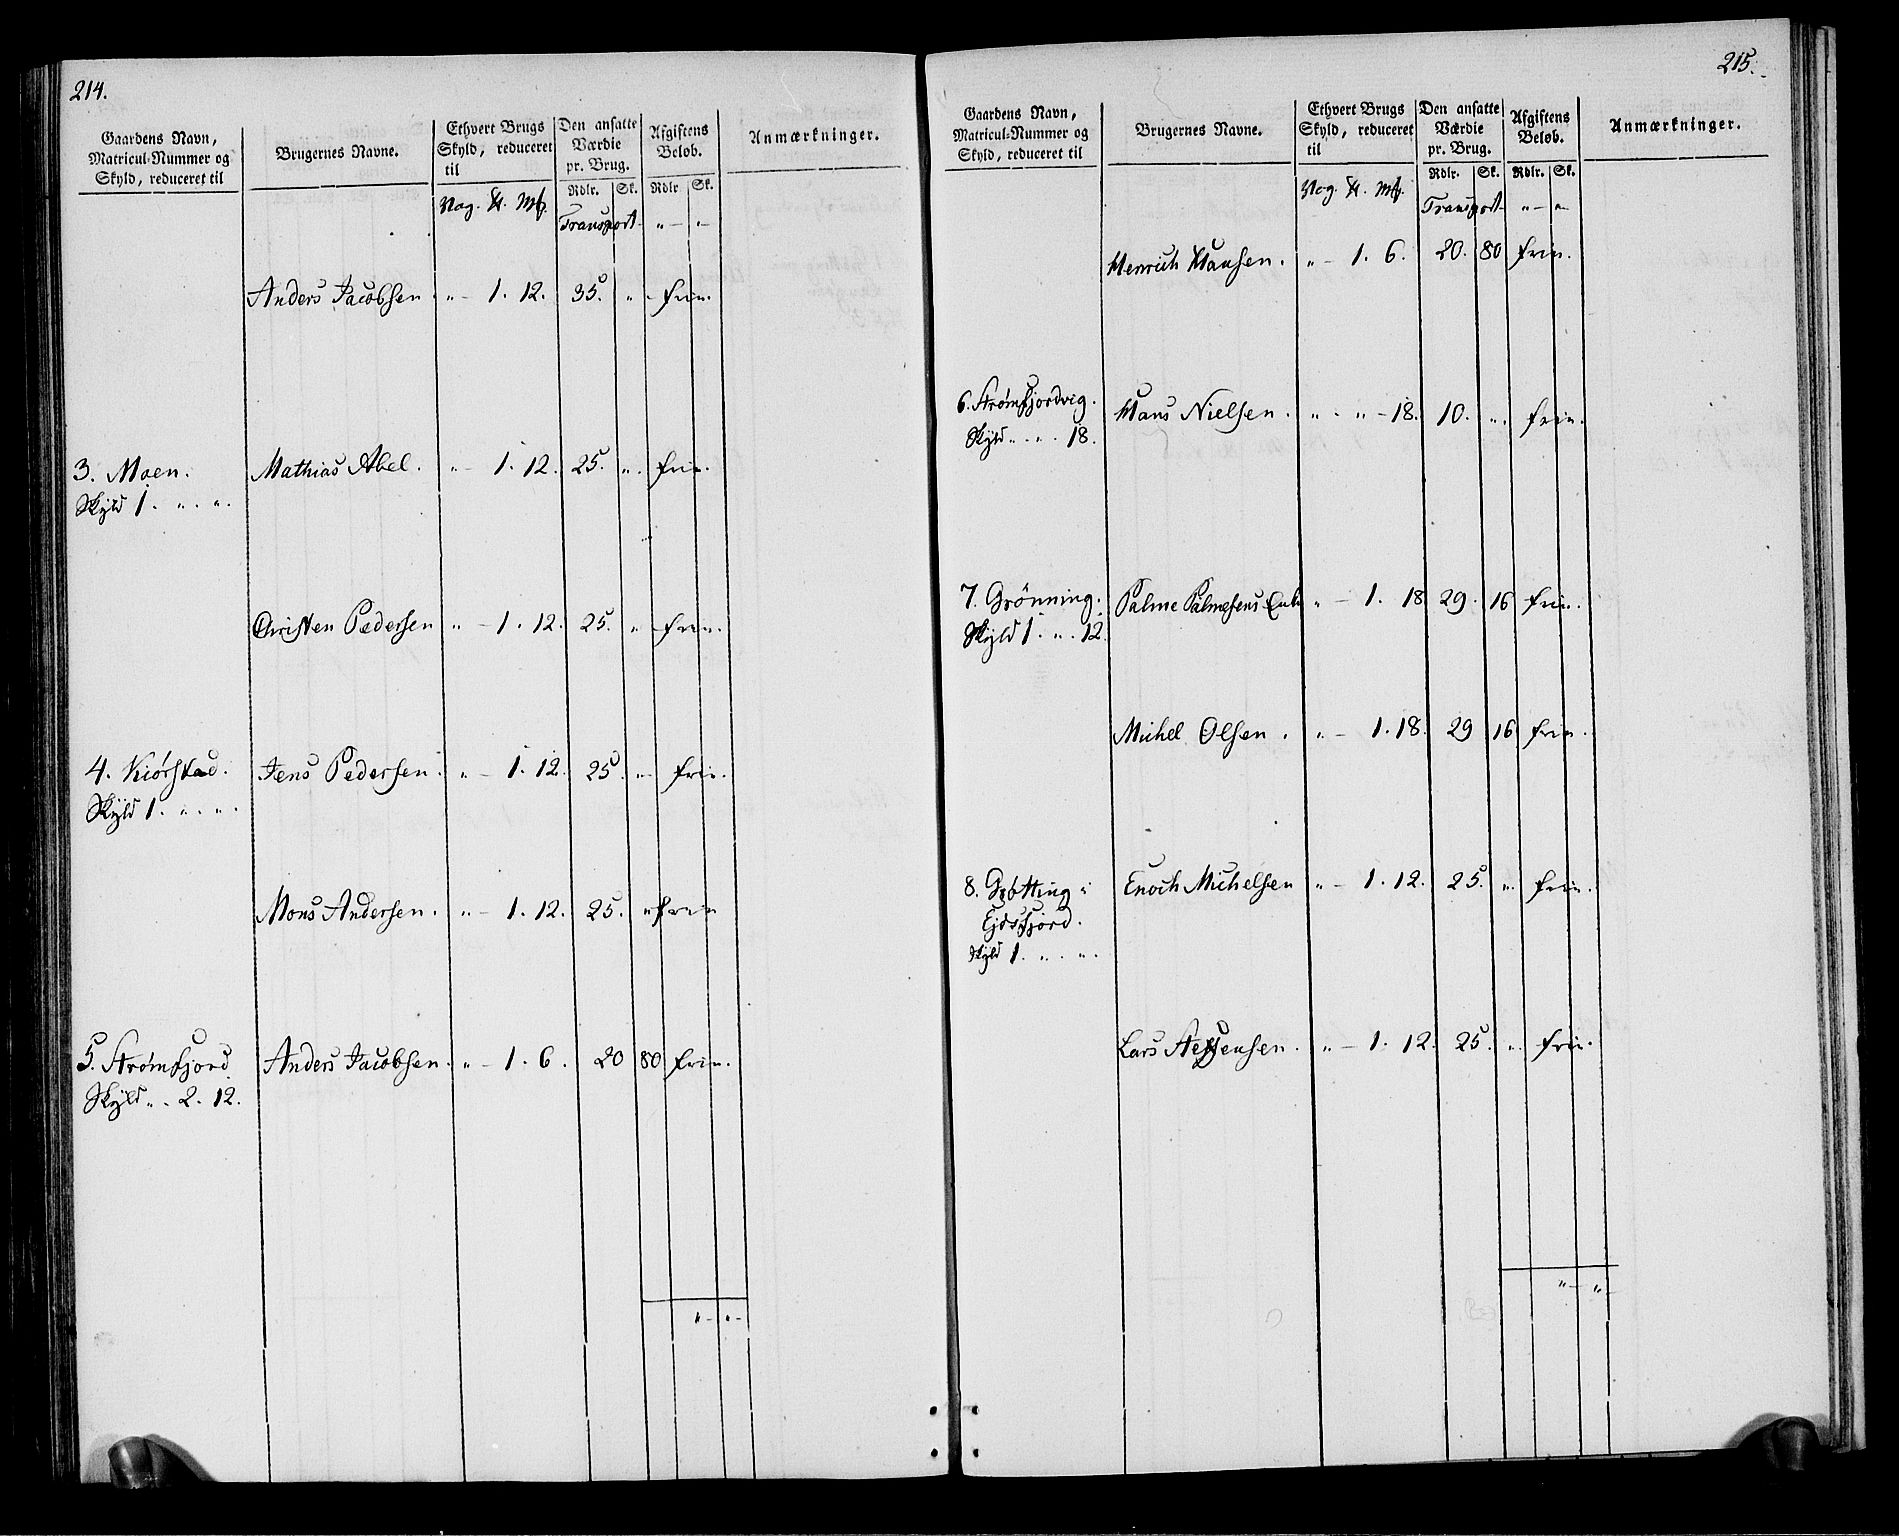 214.
Gaardens Navn, Matricul-Nummer og Skyld, reduceret til
Brugernes Navne.
Ethvert Brugs Skyld, reduceret til
Den ansatte Værdie pr. Brug.
Afgiftens Beløb.
Anmærkninger.
Rdlr. Sk. Rdlr Sk.
Vog. Mk.
Transport „ – „
Anders Jacobsen. „ – 1. 12. 35. „ frie.
3. Moen. Mathias Abel. „ – 1. 12. 25. „ frie.
Skyld 1. „ . „ .
Christen Pedersen „ – 1. 12. 25. „ frie.
4. Kiørstad. Jens Pedersen. „ – 1. 12. 25. „ frie.
Skyld 1. „ . „ .
Mons Andersen. „ – 1. 12. 25. „ frie
5. Strømfjord Anders Jacobsen. „ – 1. 6. 20 80 frie.
Skyld „ . 2. 12.
„ – „ –
215.
Gaardens Navn, Matricul-Nummer og Skyld, reduceret til
Brugernes Navne.
Ethvert Brugs Skyld, reduceret til
Den ansatte Værdie pr. Brug.
Afgiftens Beløb.
Anmærkninger.
Rdlr. Sk. Rdlr. Sk.
Vog. Mk.
Transport „ – „
Henrich Hansen. „ – 1. 6. 20. 80 frie.
6. Strømfjordvig. Hans Nielsen. „ – „ – 18. 10. „ . frie.
Skyld „ . „ . 18.
7. Grönning. Palme Palmesens Enke „ – 1. 18 29. 16 frie.
Skyld 1. „ . 12.
Michel Olsen. „ – 1. 18. 29 16 frie.
8. Grøtting i Enoch Michelsen „ – 1. 12. 25. „ . frie.
Ejdsfjord.
Skyld 1. „ . „ .
Lars Steffensen. „ – 1. 12. 25. „ . frie.
„ – „ –